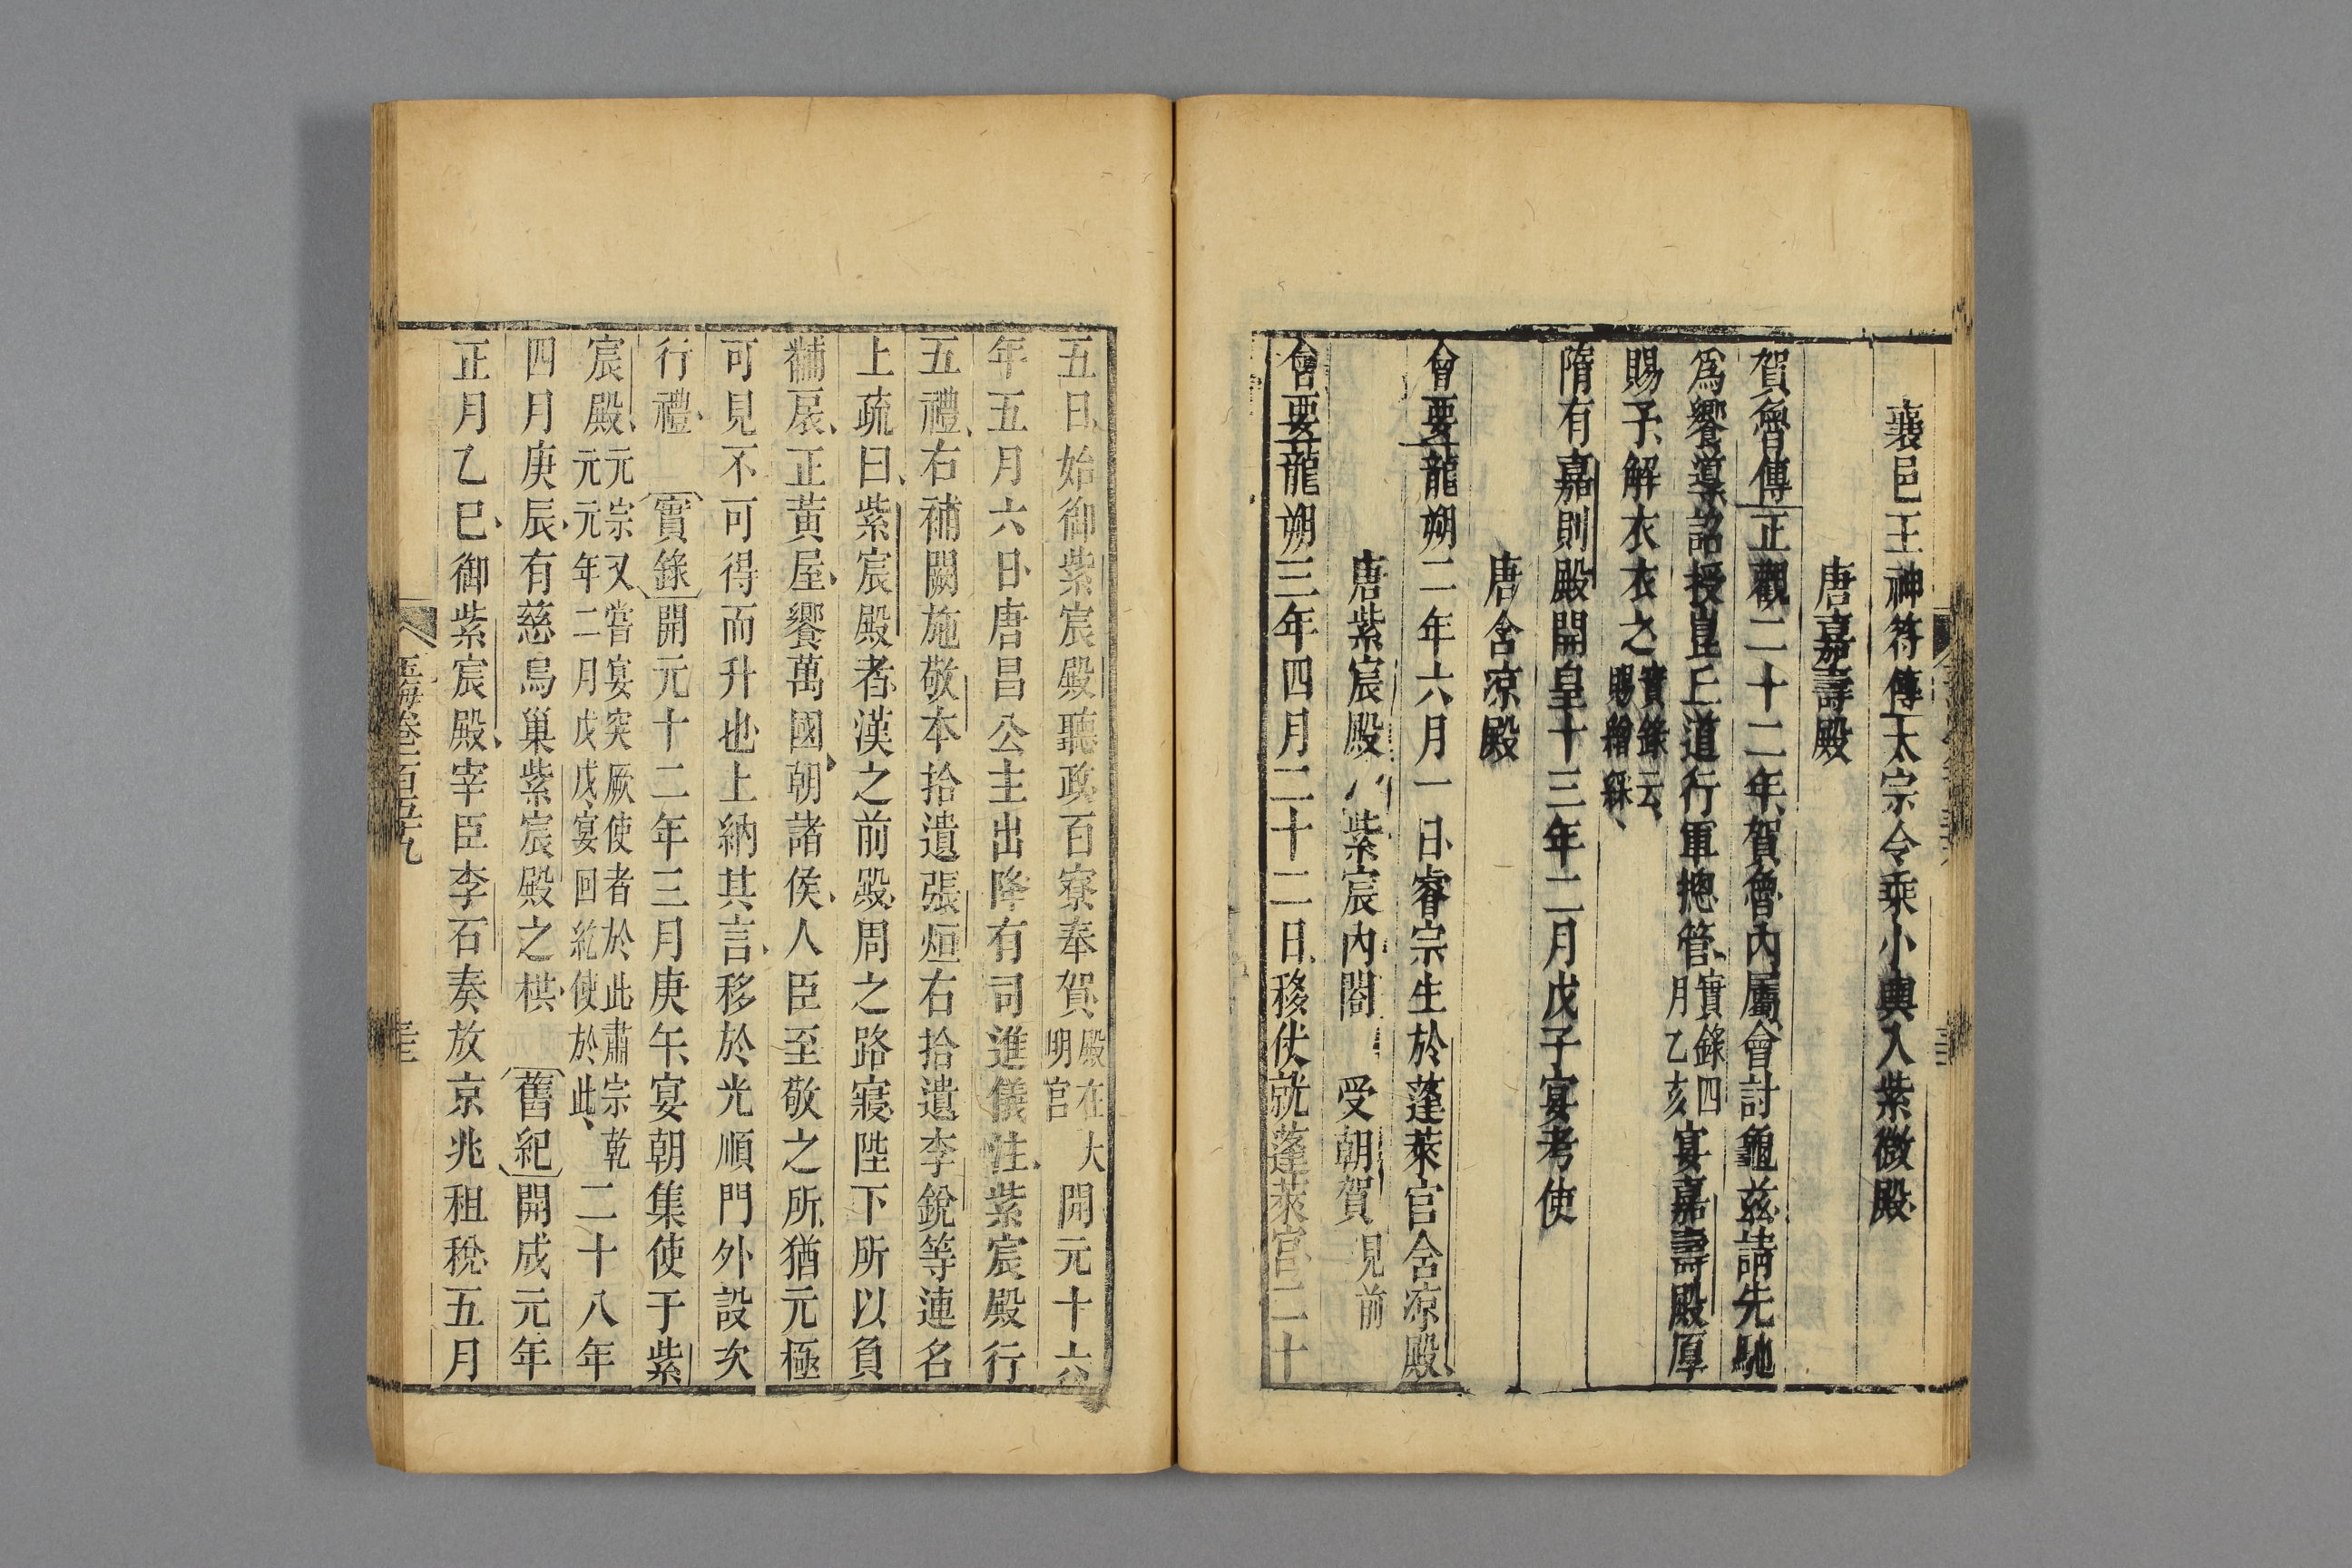 襄邑王神符傳太宗令乘小輿入紫微殿
唐嘉壽殿
賀魯傳正觀二十二年賀魯內屬會討龜玆請先馳
爲饗導詔授崑丘道行軍摠管實錄四月乙亥宴嘉壽殿厚
賜予解衣衣之實錄云賜繒綵
隋有嘉則殿開皇十三年二月戊子宴考使
唐含凉殿
會要龍朔二年六月一日睿宗生於蓬萊宫含凉殿
唐紫宸殿 紫宸內閤 受朝賀見前
會要龍朔三年四月二十二日移仗就蓬萊宫二十
五日始御紫宸殿聽政百寮奉賀殿在大明宫開元十六
年五月六日唐昌公主出降有司進儀注紫宸殿行
五禮右補闕施敬本拾遺張烜右拾遺李銳等連名
上疏曰紫宸殿者漢之前殿周之路寢陛下所以負
黼扆正黃屋饗萬國朝諸侯人臣至敬之所猶元極
可見不可得而升也上納其言移於光順門外設次
行禮 實錄開元十二年三月庚午宴朝集使于紫
宸殿元宗又嘗宴突厥使者於此肅宗乾元元年二月戊戌宴回紇使於此二十八年
四月庚辰有慈烏巢紫宸殿之栱 舊紀開成元年
正月乙巳御紫宸殿宰臣李石奏放京兆租稅五月
玉海卷一百五十九